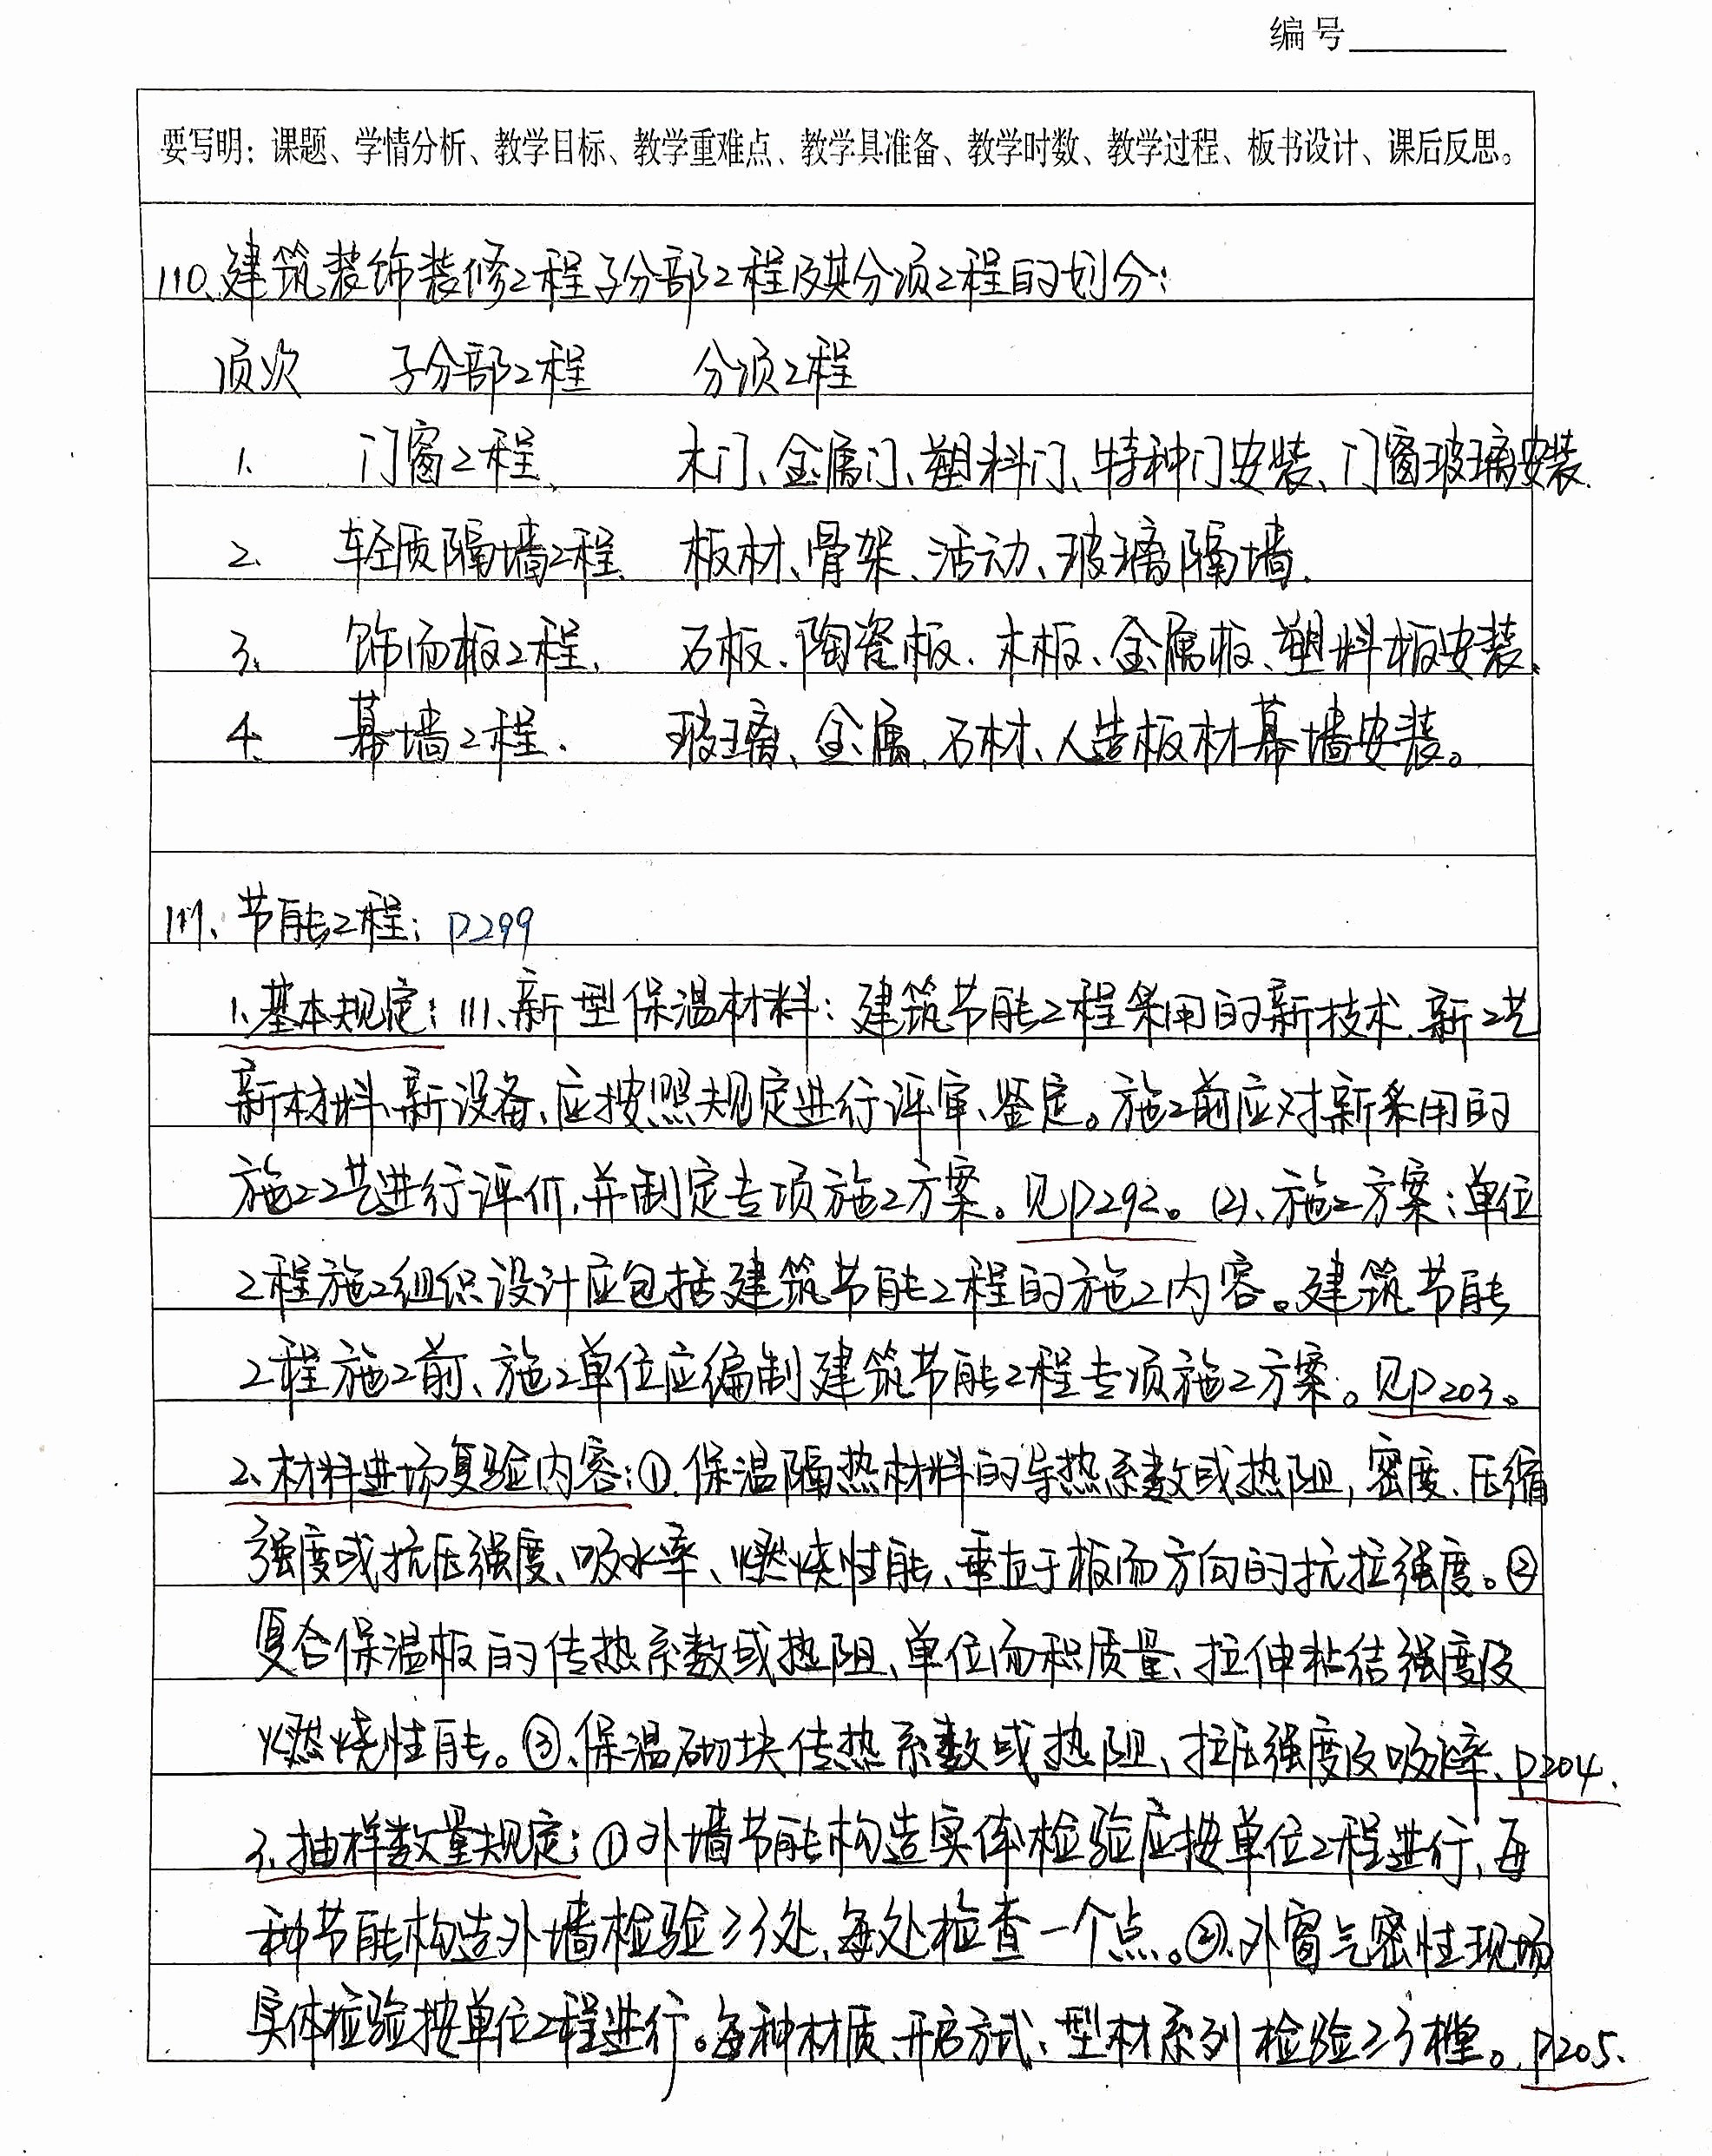 编号
要写明：课题、学情分析、教学目标、教学重难点、教学具准备、教学时数、教学过程、板书设计、课后反思。
110、建筑装饰装修工程子分部工程及其分项工程的划分：
项次 子分部工程 分项工程
1、 门窗工程、 木门、金属门、塑料门、特种门安装、门窗玻璃安装.
2、 轻质隔墙工程、 板材、骨架、活动、玻璃隔墙.
3、 饰面板工程、 石板、陶瓷板、木板、金属板、塑料板安装、
4、 幕墙工程. 玻璃、金属、石材、人造板材幕墙安装。
111、节能工程：P299
1、基本规定：(1)、新型保温材料：建筑节能工程采用的新技术、新工艺
新材料、新设备、应按照规定进行评审、鉴定。施工前应对新采用的
施工工艺进行评价，并制定专项施工方案。见P292。(2)、施工方案：单位
工程施工组织设计应包括建筑节能工程的施工内容。建筑节能
工程施工前、施工单位应编制建筑节能工程专项施工方案。见P203。
2、材料进场复验内容：①.保温隔热材料的导热系数或热阻，密度、压缩
强度或抗压强度、吸水率、燃烧性能、垂直于板面方向的抗拉强度。②
复合保温板的传热系数或热阻、单位面积质量、拉伸粘结强度及
燃烧性能。③、保温砌块传热系数或热阻、抗压强度及吸水率、P204.
3、抽样数量规定：①外墙节能构造实体检验应按单位工程进行，每
种节能构造外墙检验≥3处，每处检查一个点。②、外窗气密性现场
实体检验按单位工程进行。每种材质、开启方式、型材系列检验≥3樘。P205.